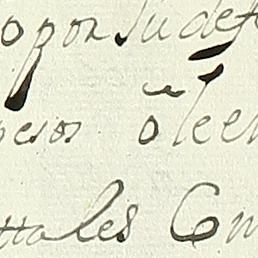 opor su def
pesos õ leen
ttales Cm